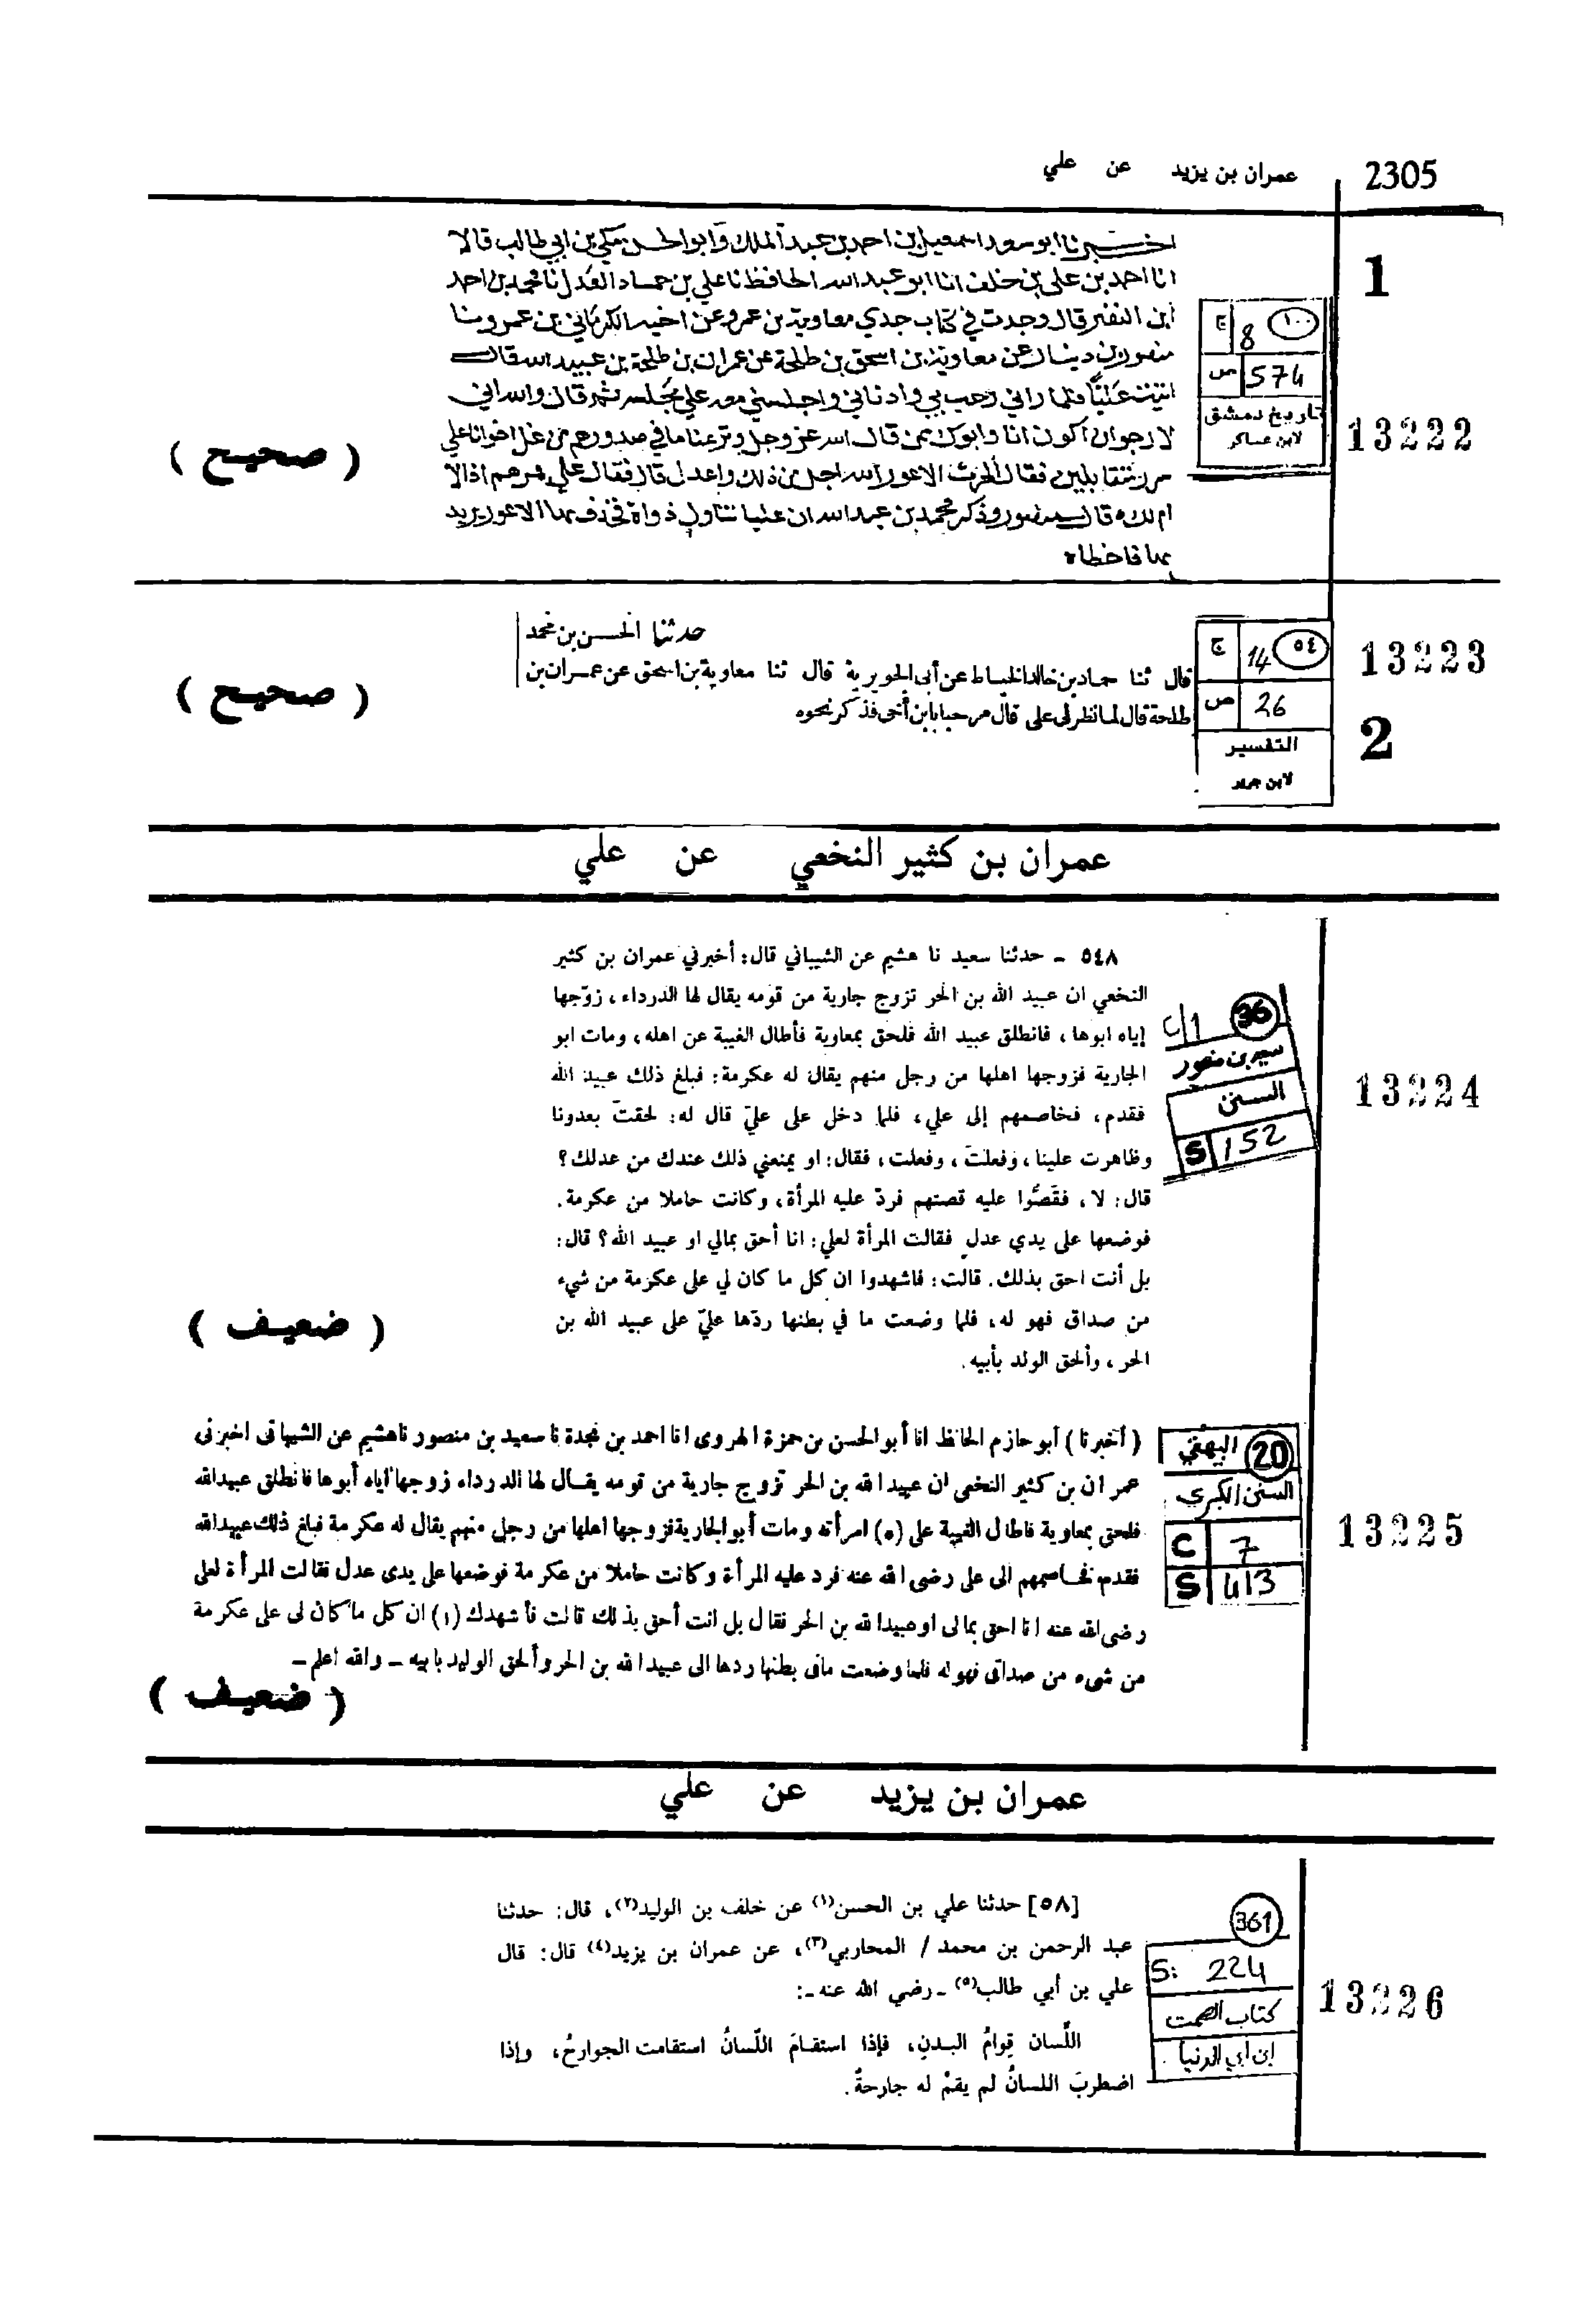 2305
عمران بن يزيد عن علي
1
ج 8 ١٠٠
ص 574
تاريخ دمشق
لابن عساكر
13222
اخبرنا ابو سعد اسمعيل بن احمد بن عبد الملك وابو الحسن مكي بن ابي طالب قالا
انا احمد بن علي بن خلف انا ابو عبد الله الحافظ نا علي بن حمساد العدل نا محمد بن احمد
ابن النضر قال وجدت في كتاب جدي معاوية بن عمرو عن اخيه الكرماني بن عمرو نا
منصور بن دينار عن معاوية بن اسحق بن طلحة عن عمران بن طلحة بن عبيد الله قال
اتيت عليًّا فلما راني رحب بي وادناني واجلسني معه على مجلسه ثم قال والله اني
لارجو ان اكون انا وابوك ممن قال الله عز وجل ونزعنا ما في صدورهم من غل اخوانا على
سرر متقابلين فقال الحرث الاعور الله اجل من ذلك واعدل قال فقال علي فمن هم اذا لا
ام لك ه قال منصور وذكر محمد بن عبد الله ان عليا تناول دواة فحذف بها الاعور يريد
بها فاخطاه
( صحيح )
13223
2
ج 14 ٥٤
ص 26
التفسير
لابن جرير
حدثنا الحسن بن محمد
قال ثنا حماد بن خالد الخياط عن أبي الجويرية قال ثنا معاوية بن اسحق عن عمران بن
طلحة قال لما نظر لى على قال مرحبا بابن أخي فذكر نحوه
( صحيح )
عمران بن كثير النخعي عن علي
٥٤٨ - حدثنا سعيد نا هشيم عن الشيباني قال: أخبرني عمران بن كثير
النخعي ان عبيد الله بن الحر تزوج جارية من قومه يقال لها الدرداء، زوّجها
إياه ابوها، فانطلق عبيد الله فلحق بمعاوية فأطال الغيبة عن اهله، ومات ابو
الجارية فزوجها اهلها من رجل منهم يقال له عكرمة: فبلغ ذلك عبيد الله
فقدم، فخاصمهم إلى علي، فلما دخل على عليّ قال له: لحقتَ بعدونا
وظاهرت علينا، وفعلتَ، وفعلت، فقال: او يمنعني ذلك عندك من عدلك؟
قال: لا، فقَصُّوا عليه قصتهم فردّ عليه المرأة، وكانت حاملا من عكرمة.
فوضعها على يدي عدل فقالت المرأة لعلي: انا أحق بمالي او عبيد الله؟ قال:
بل أنت احق بذلك. قالت: فاشهدوا ان كل ما كان لي على عكرمة من شيء
من صداق فهو له، فلما وضعت ما في بطنها ردّها عليّ على عبيد الله بن
الحر، وألحق الولد بأبيه.
36
C/1
سعيد بن منصور
السنن
S 152
13224
( ضعيف )
( أخبرنا ) أبو حازم الحافظ انا أبو الحسن بن حمزة الهروى انا احمد بن نجدة نا سعيد بن منصور نا هشيم عن الشيبانى اخبرنى
عمران بن كثير النخعى ان عبيد الله بن الحر تزوج جارية من قومه يقال لها الدرداء زوجها اياه أبوها فانطلق عبيد الله
فلحق بمعاوية فاطال الغيبة على (٥) امرأته ومات أبو الجارية فزوجها اهلها من رجل منهم يقال له عكرمة فبلغ ذلك عبيد الله
فقدم فخاصمهم الى على رضى الله عنه فرد عليه المرأة وكانت حاملا من عكرمة فوضعها على يدى عدل فقالت المرأة لعلى
رضى الله عنه انا احق بمالى او عبيد الله بن الحر فقال بل انت أحق بذلك قالت فأشهدك (١) ان كل ما كان لى على عكرمة
من شىء من صداق فهو له فلما وضعت ما فى بطنها ردها الى عبيد الله بن الحر وألحق الوليد بابيه - والله اعلم -
20
البيهقي
السنن الكبرى
C 7
S 413
13225
( ضعيف )
عمران بن يزيد عن علي
[٥٨] حدثنا علي بن الحسن(١) عن خلف بن الوليد(٢)، قال: حدثنا
عبد الرحمن بن محمد / المحاربي(٣)، عن عمران بن يزيد(٤) قال: قال
علي بن أبي طالب(٥) ـ رضي الله عنه ـ:
اللِّسان قِوامُ البـدنِ، فإذا استقـامَ اللّسانُ استقامت الجوارحُ، وإذا
اضطربَ اللسانُ لم يقمْ له جارحةٌ.
361
S: 224
كتاب الصمت
ابن ابي الدنيا
13226